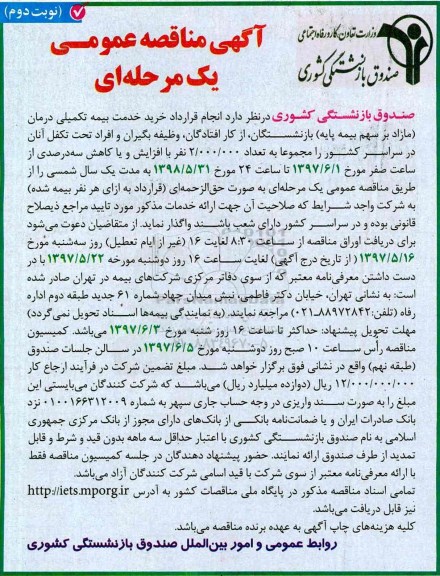 (نوبت دوم)
وزارت تعاون، کار و رفاه اجتماعی
صندوق بازنشستگی کشوری
آگهی مناقصه عمومی
یک مرحله‌ای
صندوق بازنشستگی کشوری درنظر دارد انجام قرارداد خرید خدمت بیمه تکمیلی درمان
(مازاد بر سهم بیمه پایه) بازنشستگان، از کار افتادگان، وظیفه بگیران و افراد تحت تکفل آنان
در سراسر کشور را مجموعا به تعداد ۲/۰۰۰/۰۰۰ نفر با افزایش و یا کاهش سه‌درصدی از
ساعت صفر مورخ ۱۳۹۷/۶/۱ تا ساعت ۲۴ مورخ ۱۳۹۸/۵/۳۱ به مدت یک سال شمسی را از
طریق مناقصه عمومی یک مرحله‌ای به صورت حق‌الزحمه‌ای (قرارداد به ازای هر نفر بیمه شده)
به شرکت واجد شرایط که صلاحیت آن جهت ارائه خدمات مذکور مورد تایید مراجع ذیصلاح
قانونی بوده و در سراسر کشور دارای شعب باشند واگذار نماید. از متقاضیان دعوت می‌شود
برای دریافت اوراق مناقصه از ساعت ۸:۳۰ لغایت ۱۶ (غیر از ایام تعطیل) روز سه‌شنبه مورخ
۱۳۹۷/۵/۱۶ ( از تاریخ درج آگهی) لغایت ساعت ۱۶ روز دوشنبه مورخه ۱۳۹۷/۵/۲۲ با در
دست داشتن معرفی‌نامه معتبر که از سوی دفاتر مرکزی شرکت‌های بیمه در تهران صادر شده
است: به نشانی تهران، خیابان دکتر فاطمی، نبش میدان جهاد شماره ۶۱ جدید طبقه دوم اداره
رفاه (تلفن: ۸۸۹۷۲۸۴۲-۰۲۱) مراجعه نمایند. (به نمایندگی بیمه‌ها اسناد تحویل نمی‌گردد)
مهلت تحویل پیشنهاد: حداکثر تا ساعت ۱۶ روز شنبه مورخ ۱۳۹۷/۶/۳ می‌باشد. کمیسیون
مناقصه رأس ساعت ۱۰ صبح روز دوشنبه مورخ ۱۳۹۷/۶/۵ در سالن جلسات صندوق
(طبقه نهم) واقع در نشانی فوق برگزار خواهد شد. مبلغ تضمین شرکت در فرآیند ارجاع کار
۱۲/۰۰۰/۰۰۰/۰۰۰ ریال (دوازده میلیارد ریال) می‌باشد که شرکت کنندگان می‌بایستی این
مبلغ را به صورت سند واریزی در وجه حساب جاری سپهر به شماره ۰۱۰۰۱۶۶۳۱۲۰۰۹ نزد
بانک صادرات ایران و یا ضمانت‌نامه بانکی از بانک‌های دارای مجوز از بانک مرکزی جمهوری
اسلامی به نام صندوق بازنشستگی کشوری با اعتبار حداقل سه ماهه بدون قید و شرط و قابل
تمدید از طرف صندوق ارائه نمایند. حضور پیشنهاد دهندگان در جلسه کمیسیون مناقصه فقط
با ارائه معرفی‌نامه معتبر از سوی شرکت با قید اسامی شرکت کنندگان آزاد می‌باشد.
تمامی اسناد مناقصه مذکور در پایگاه ملی مناقصات کشور به آدرس http://iets.mporg.ir
نیز قابل دریافت می‌باشد.
کلیه هزینه‌های چاپ آگهی به عهده برنده مناقصه می‌باشد.
روابط عمومی و امور بین‌الملل صندوق بازنشستگی کشوری